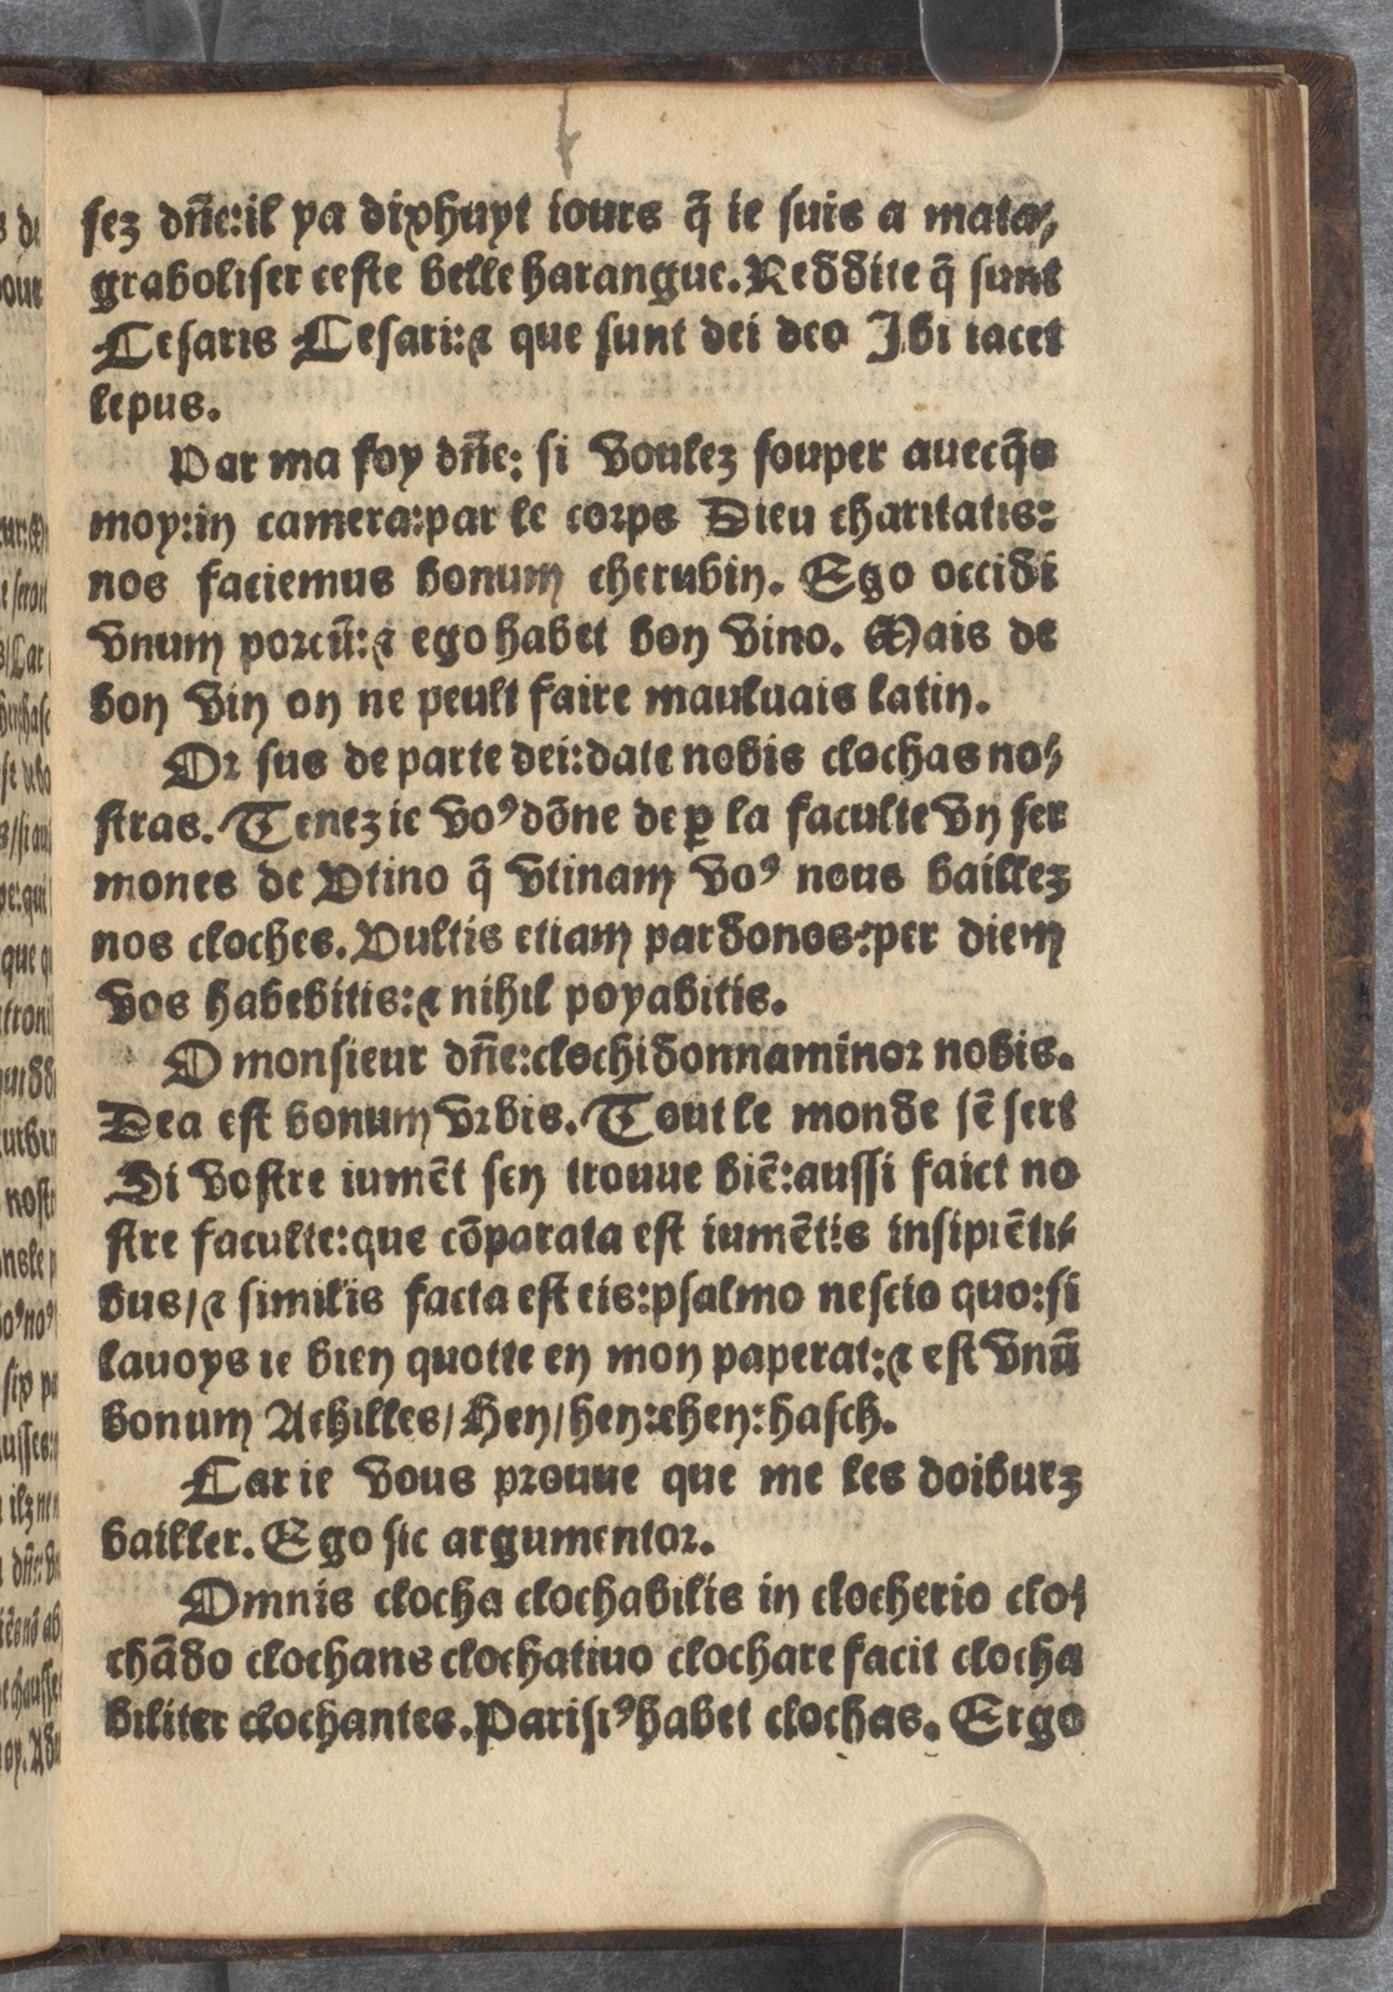 sez dn̄e:il ya dixhuyt iours q̄ ie suis a mata⸗
graboliser ceste belle harangue. Reddite q̄ sunt
Cesaris Cesari:⁊ que sunt dei deo Ibi iacet
lepus.
Par ma foy dn̄e: si voulez souper auecq̄s
moy:in camera:par le corps Dieu charitatis:
nos faciemus bonum cherubin. Ego occidi
vnum porcū:⁊ ego habet bon vino. Mais de
bon vin on ne peult faire mauluais latin.
Or sus de parte dei:date nobis clochas no⸗
stras. Tenez ie voꝰ dōne de ꝑ la faculte vn ser
mones de Vtino q̄ vtinam voꝰ nous baillez
nos cloches. Vultis etiam pardonos:per diem
vos habebitis:⁊ nihil poyabitis.
O monsieur dn̄e:clochidonnaminor nobis.
Dea est bonum vrbis. Tout le monde sē sert
Di vostre iumēt sen trouue biē:aussi faict no
stre faculte:que cōparata est iumētis insipiēti⸗
bus/⁊ similis facta est eis:psalmo nescio quo:si
lauoys ie bien quotte en mon paperat:⁊ est vnū
bonum Achilles/Hen/hen:ehen:hasch.
Car ie vous prouue que me les doibuez
bailler. Ego sic argumentor.
Omnis clocha clochabilis in clocherio clo⸗
chādo clochans clochatiuo clochare facit clocha
biliter clochantes. Parisiꝰ habet clochas. Ergo